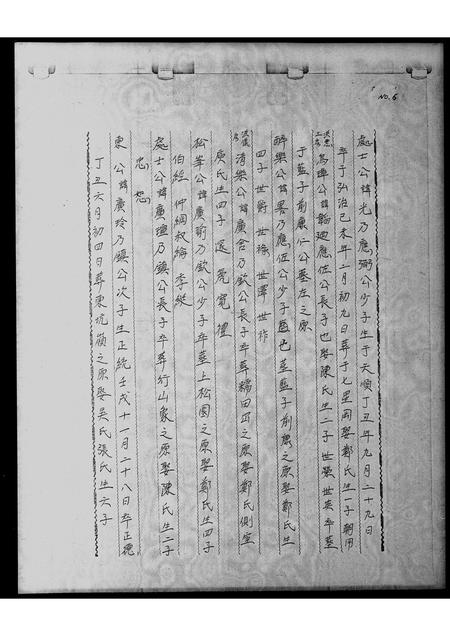 NO. 6
處士公諱光乃應弼公少子生于天順丁丑年九月二十九日
卒于弘治己未年二月初九日葬于七星岡娶鄭氏生一子朝用
公諱廸應佐公長子也娶陳氏生二子世 世英卒葬
于藍子前康仁公墓左之原
醉樂公諱 乃應佐公少子 葬藍子前 之原娶鄭氏生
四子世爵世祿世澤世祚
清樂公諱廣含乃欽公長子卒葬 田 之原娶鄭氏側室
庾氏生四子 寬禮
松峯公諱廣 乃欽公少子卒葬上松園之原娶鄭氏生四子
伯經仲綱叔綸季縱
處士公諱廣 乃鎮公長子卒葬竹山 之原娶陳氏生二子
忠恕
東 公諱廣玲乃鎮公次子生正統壬戌十一月二十八日卒正德
丁丑六月初四日葬東坑 之原娶吳氏張氏生六子